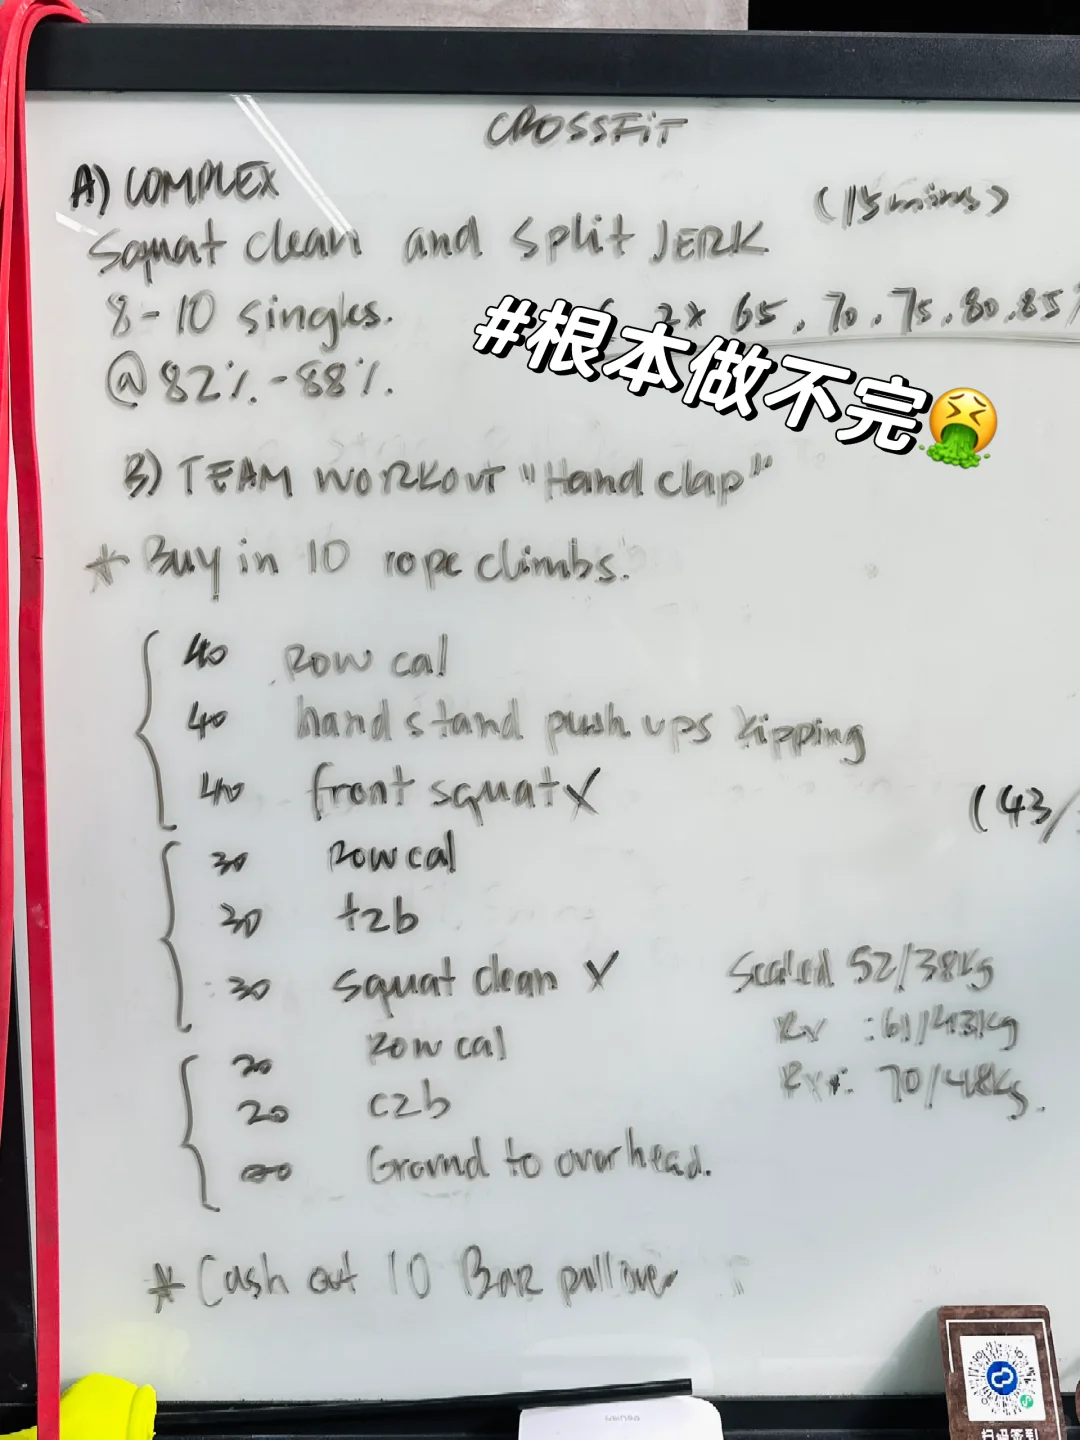 CROSSFiT
A) COMPLEX
(15 mins)
Squat clean and split JERK
8-10 singles.
2x 65, 70, 75, 80, 85%
@ 82% - 88%.
#根本做不完🤮
B) TEAM WORKOUT "Hand clap"
* Buy in 10 rope climbs.
40 Row cal
40 hand stand push ups kipping
40 front squat X
(43/
30 Row cal
30 t2b
30 squat clean X
Scaled 52/38kg
20 Row cal
Rx : 61/43kg
20 c2b
Rx+: 70/48kg.
20 Ground to over head.
* Cash out 10 Bar pullover